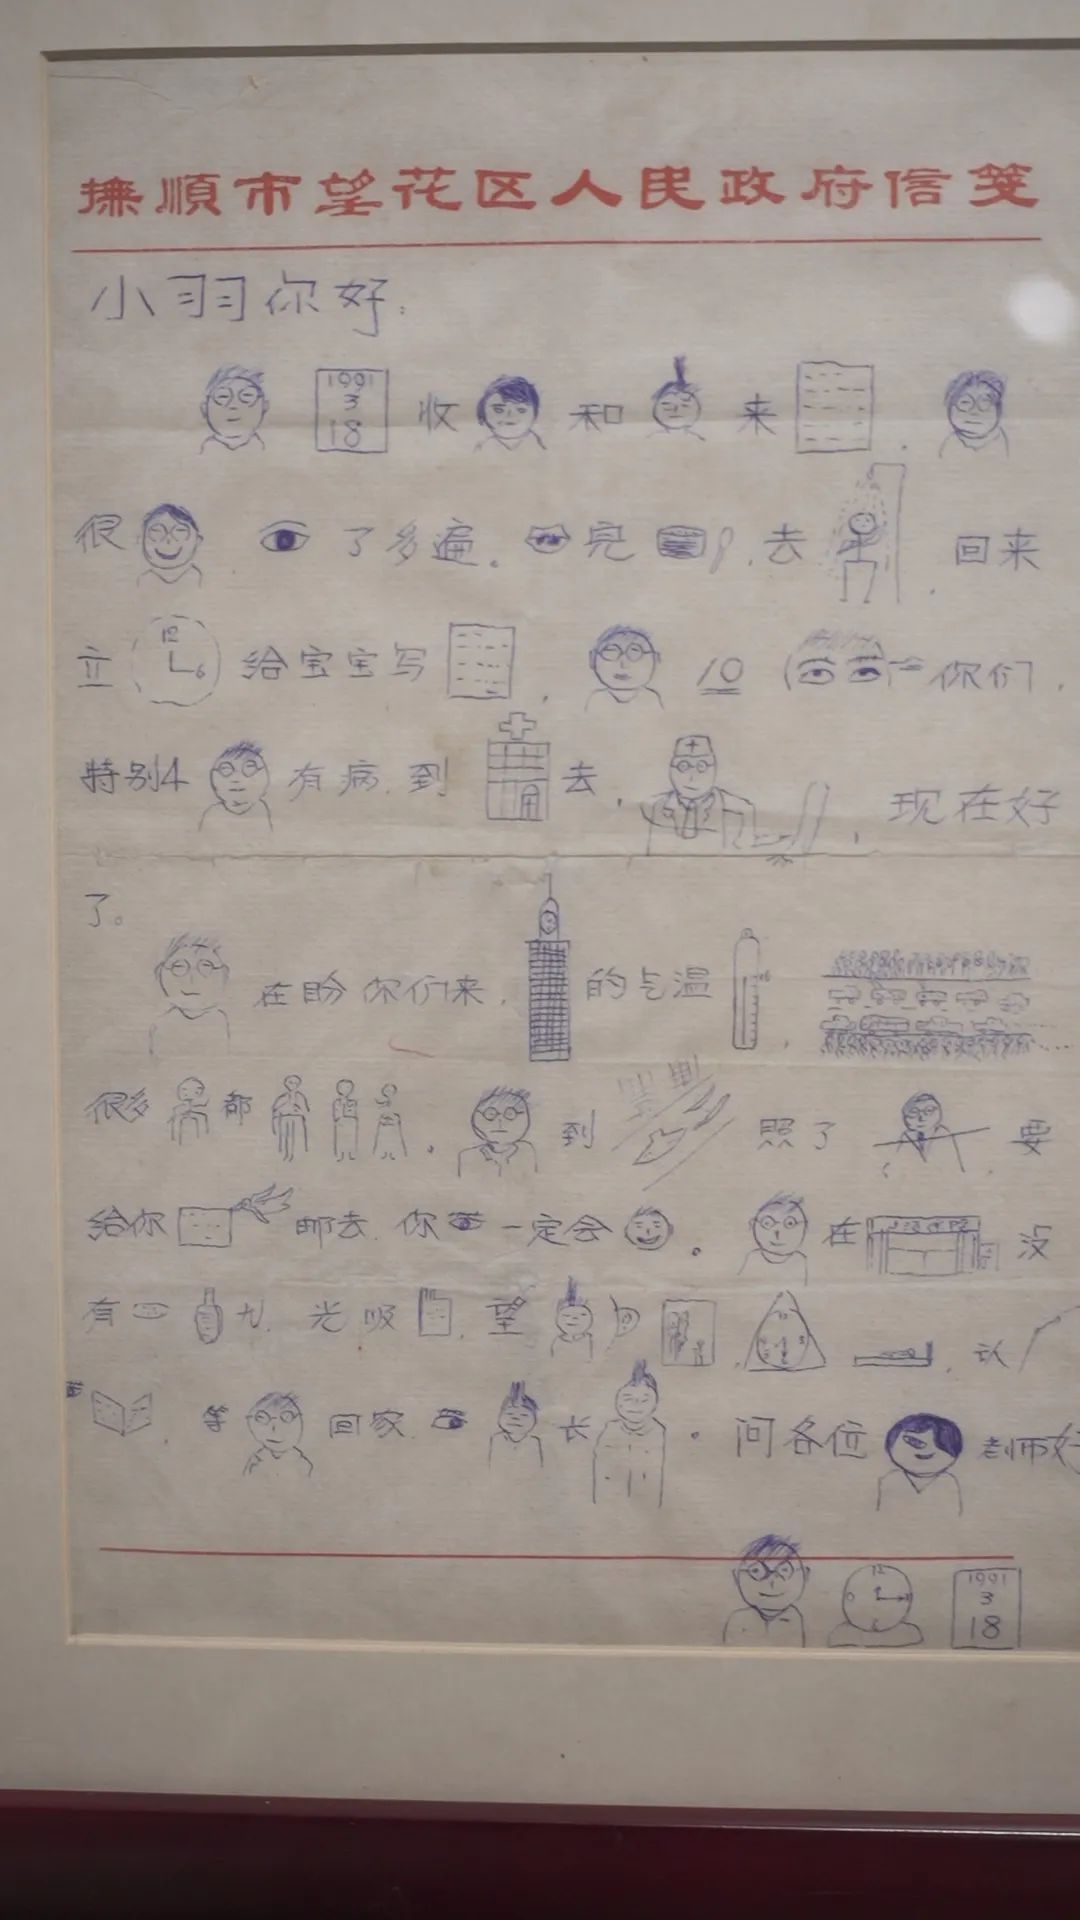 撫順市望花区人民政府信箋
小羽你好：
1991 3 18 收 和 来 .
很 了多遍. 完 .去 . 回来
立 12 6 给宝宝写 . 10 你们.
特别4 有病.到 去. . 现在好
了。
在盼你们来. 的气温 .
很多 都 . 到 照了 . 要
给你 邮去. 你 一定会 。 在 没
有一 九. 光吸 . 望 . . 认
. 等 回家. 长 . 问各位 老师好
12 1991 3 18